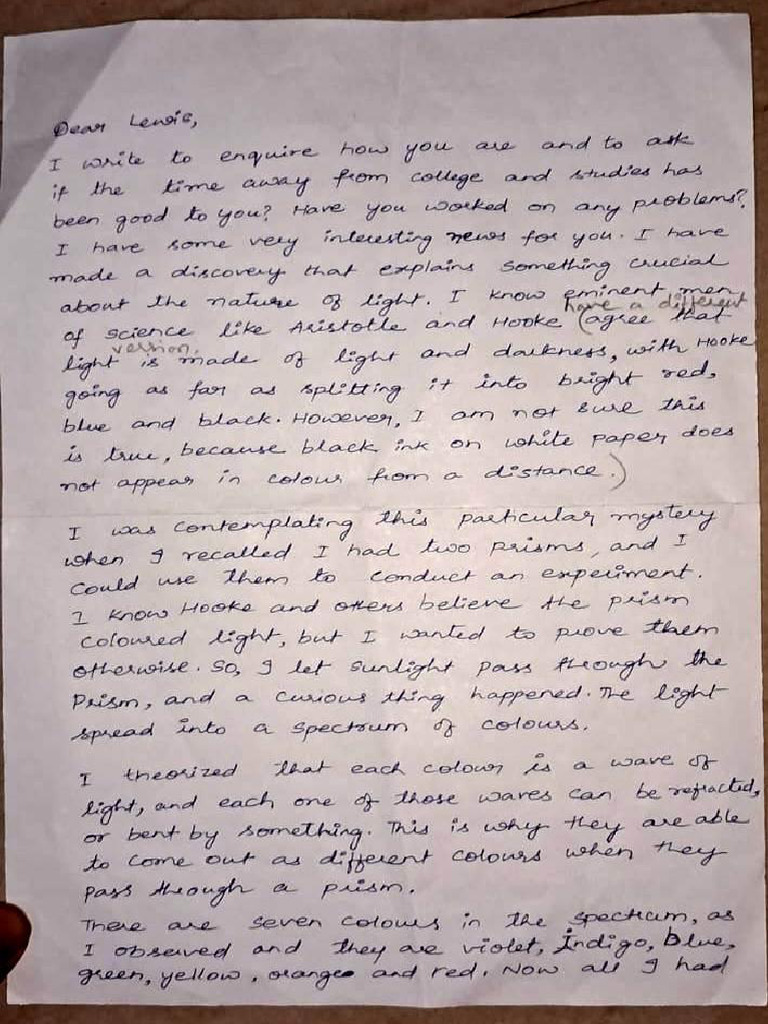 Dear Lewis,
I write to enquire how you are and to ask
if the time away from college and studies has
been good to you? Have you worked on any problems?
I have some very interesting news for you. I have
made a discovery that explains something crucial
about the nature of light. I know eminent men
have a different
of science like Aristotle and Hooke (agree that
version.
light is made of light and darkness, with Hooke
going as far as splitting it into bright red,
blue and black. However, I am not sure this
is true, because black ink on white paper does
not appear in colour from a distance.)
I was contemplating this particular mystery
when I recalled I had two prisms, and I
could use them to conduct an experiment.
I know Hooke and others believe the prism
coloured light, but I wanted to prove them
otherwise. So, I let sunlight pass through the
Prism, and a curious thing happened. The light
spread into a spectrum of colours.
I theorized that each colour is a wave of
light, and each one of those waves can be refracted,
or bent by something. This is why they are able
to come out as different colours when they
pass through a prism.
There are seven colours in the spectrum, as
I observed and they are violet, Indigo, blue,
green, yellow, orange and red. Now all I had